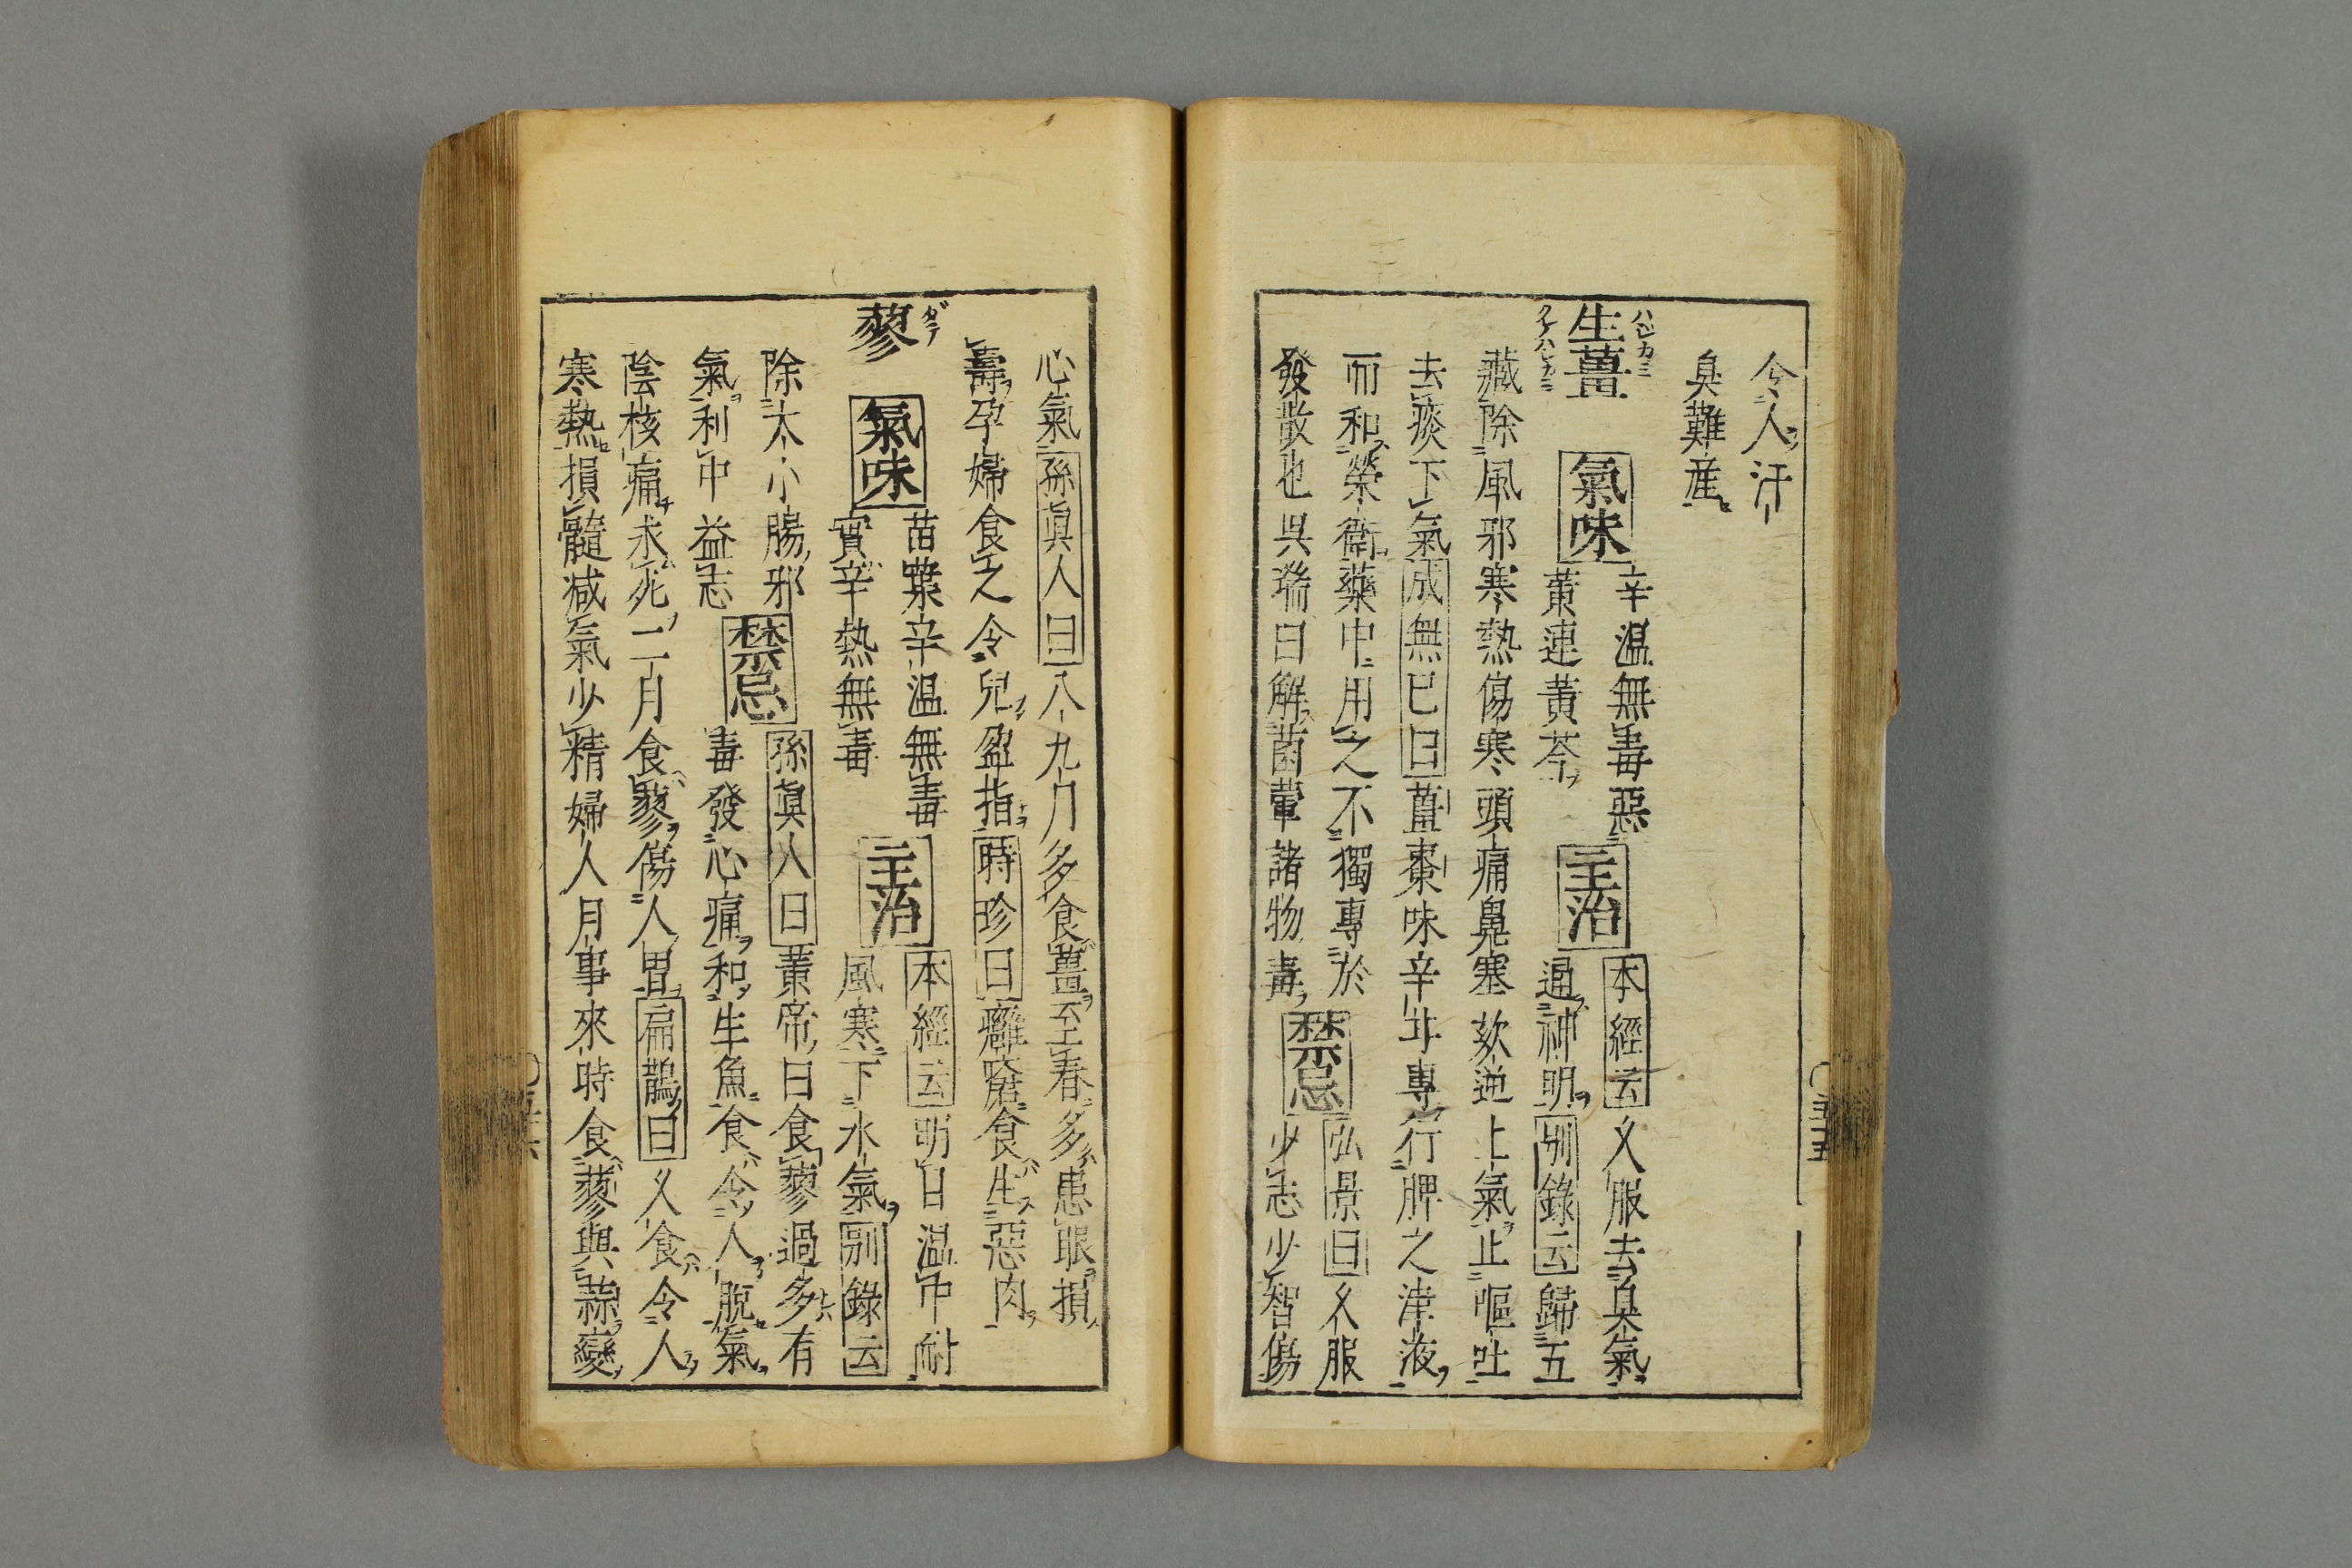 令人汗
臭難産
生薑
ハジカミ
氣味
辛温無毒惡
黄連黄芩
主治
本經云久服去臭氣
通神明別錄云歸五
藏除風邪寒熱傷寒頭痛鼻塞欬逆上氣止嘔吐
去痰下氣成無已曰薑棗味辛非專行脾之津液
而和榮衛藥中用之不獨專於
發散也呉瑞曰解菌蕈諸物毒
禁忌
弘景曰久服
少志少智傷
心氣孫眞人曰八九月多食薑至春多患眼損
壽孕婦食之令兒盈指時珍曰癰瘡食生惡肉
蓼
タデ
氣味
苗葉辛温無毒
實辛熱無毒
主治
本經云明目温中耐
風寒下水氣別錄云
除大小腸邪
氣利中益志
禁忌
孫眞人曰黄帝曰食蓼過多有
毒發心痛和生魚食令人脱氣
陰核痛求死二月食蓼傷人胃扁鵲曰久食令人
寒熱損髓減氣少精婦人月事來時食蓼與蒜變